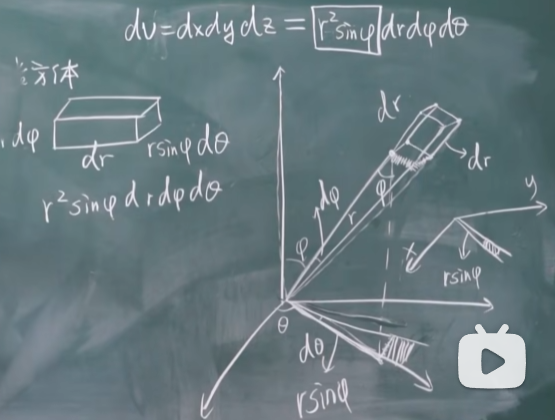 dv=dxdydz = r²sinφ drdφdθ
方体
dφ
dr
rsinφdθ
r²sinφdrdφdθ
dr
dr
φ
dφ
r
φ
y
x
rsinφ
θ
dθ
rsinφ